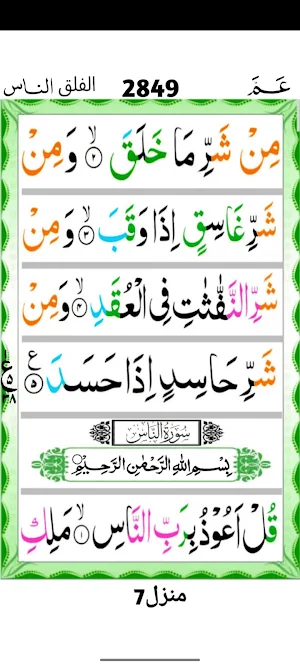 الفلق الناس 2849 عَـمَّ
مِنْ شَرِّ مَا خَلَقَ ۙ‏﴿۲﴾ وَ مِنْ
شَرِّ غَاسِقٍ اِذَا وَقَبَ ۙ‏﴿۳﴾ وَ مِنْ
شَرِّ النَّفّٰثٰتِ فِى الْعُقَدِ ۙ‏﴿۴﴾ وَمِنْ
شَرِّ حَاسِدٍ اِذَا حَسَدَ ﴿۵﴾ ع
ع ۵ ۸
سُوْرَةُ النَّاسِ
بِسْمِ اللهِ الرَّحْمٰنِ الرَّحِيْمِ
قُلْ اَعُوْذُ بِرَبِّ النَّاسِ ۙ‏﴿۱﴾ مَلِكِ
منزل7